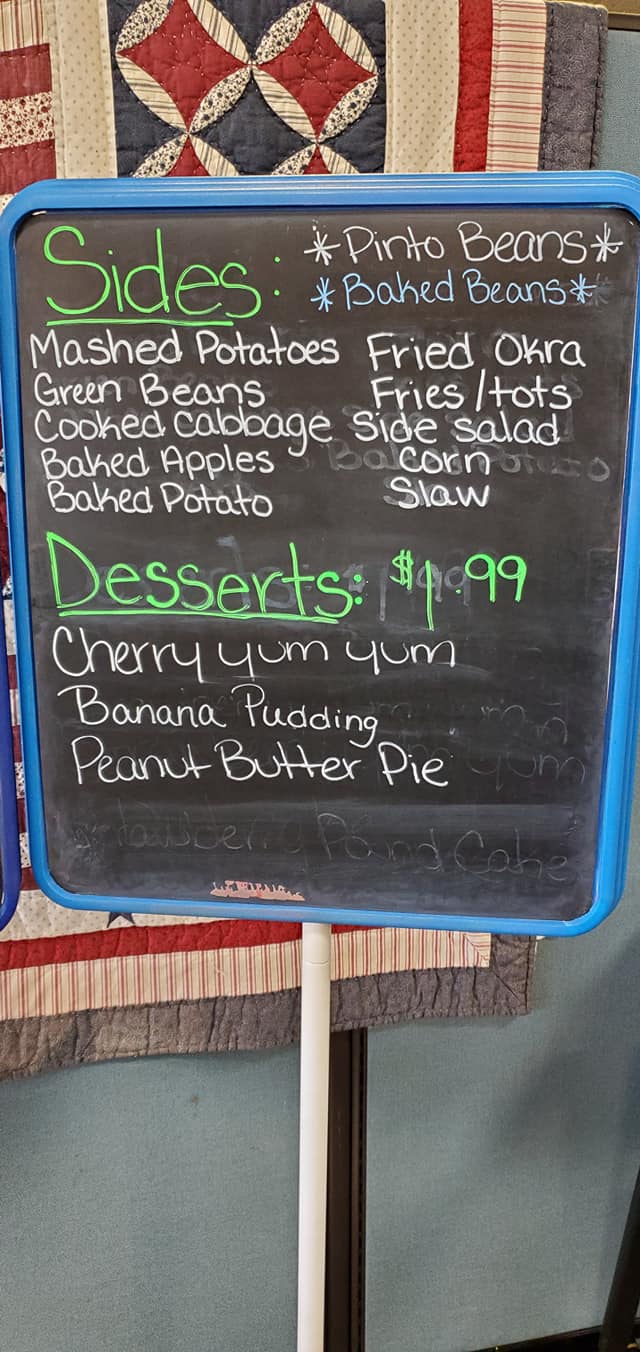 Sides: *Pinto Beans*
*Baked Beans*
Mashed Potatoes Fried Okra
Green Beans Fries/tots
Cooked Cabbage Side salad
Baked Apples Corn
Baked Potato Slaw
Desserts: $1.99
Cherry yum yum
Banana Pudding
Peanut Butter Pie
Pound Cake